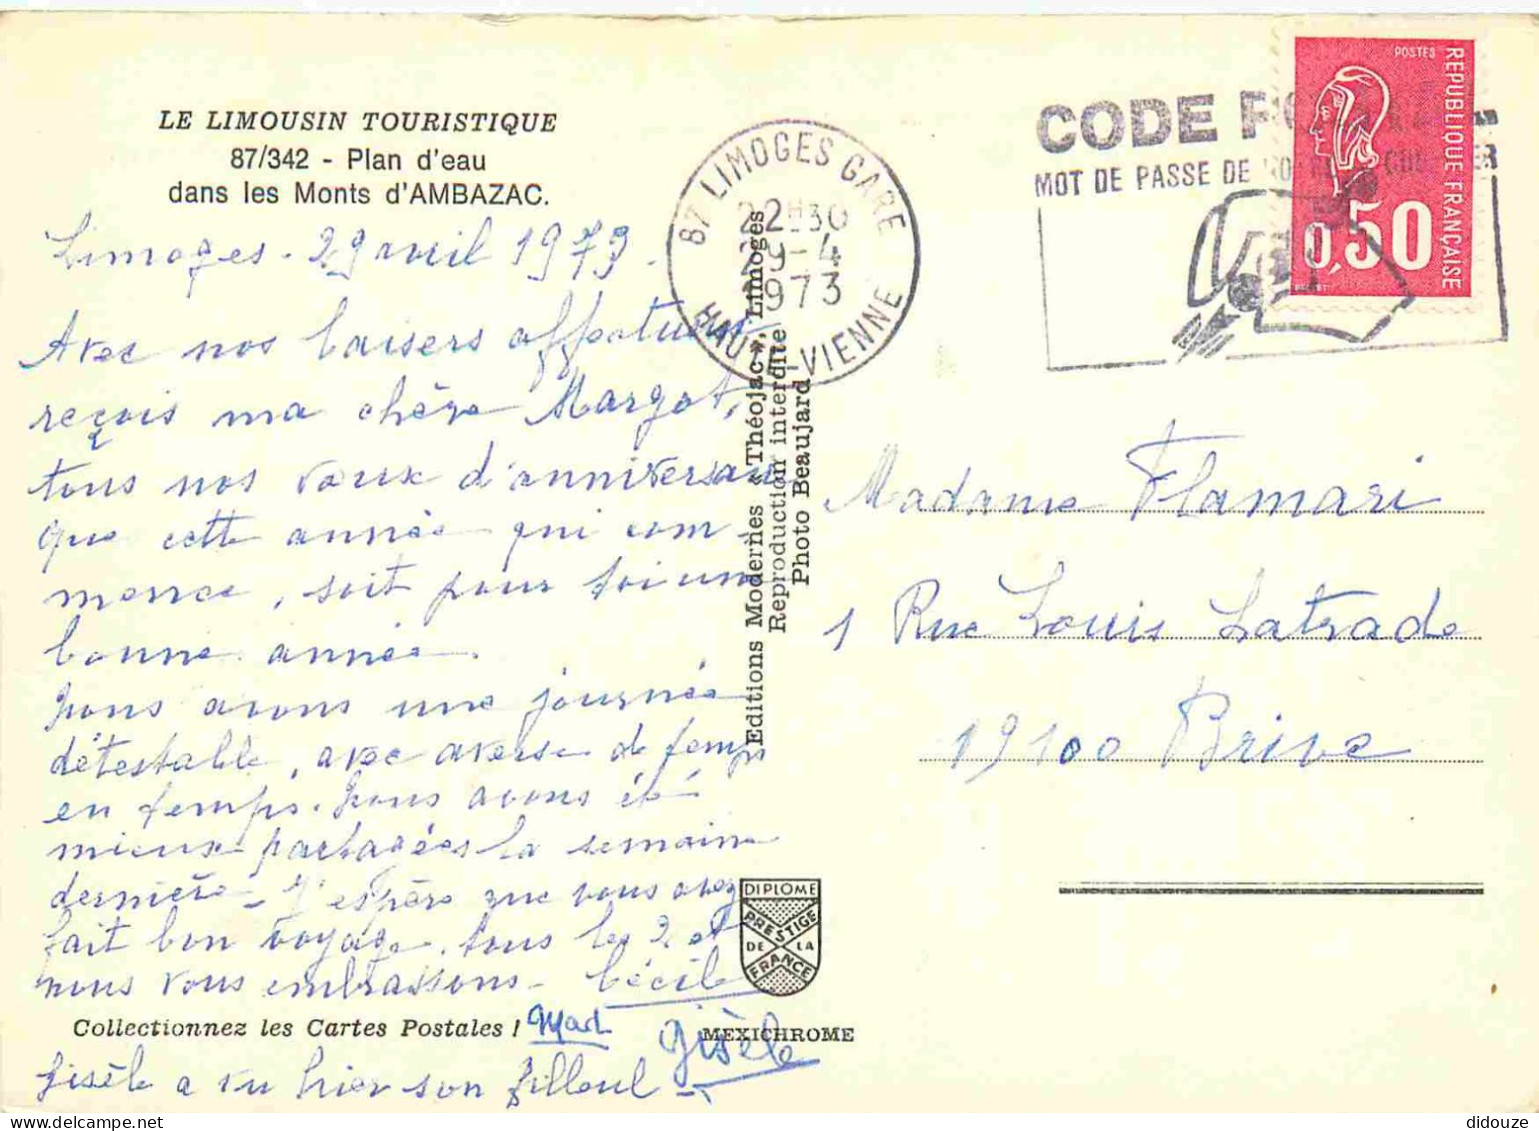 LE LIMOUSIN TOURISTIQUE
87/342 - Plan d'eau
dans les Monts d'AMBAZAC.
Limoges - 29 avril 1973.
Avec nos baisers affectueux
reçois ma chère Margot,
tous nos vœux d'anniversaire
que cette année qui com-
mence, soit pour toi une
bonne année.
Nous avons une journée
détestable, avec averse de temps
en temps. Nous avons été
mieux partagées la semaine
dernière - J'espère que vous avez
fait bon voyage. tous les 2 et
nous vous embrassons - Cécile
Collectionnez les Cartes Postales !
Gisèle
Gisèle a vu hier son filleul
Editions Modernes « Théojac », Limoges
Reproduction interdite
Photo Beaujard
DIPLOME
PRESTIGE
DE LA
FRANCE
MEXICHROME
87 LIMOGES GARE
22H30
29-4
1973
HAUTE-VIENNE
CODE
MOT DE PASSE DE
POSTES
REPUBLIQUE FRANÇAISE
0,50
Madame Flamari
1 Rue Louis Latrade
19100 Brive
didouze
Delcampe.net